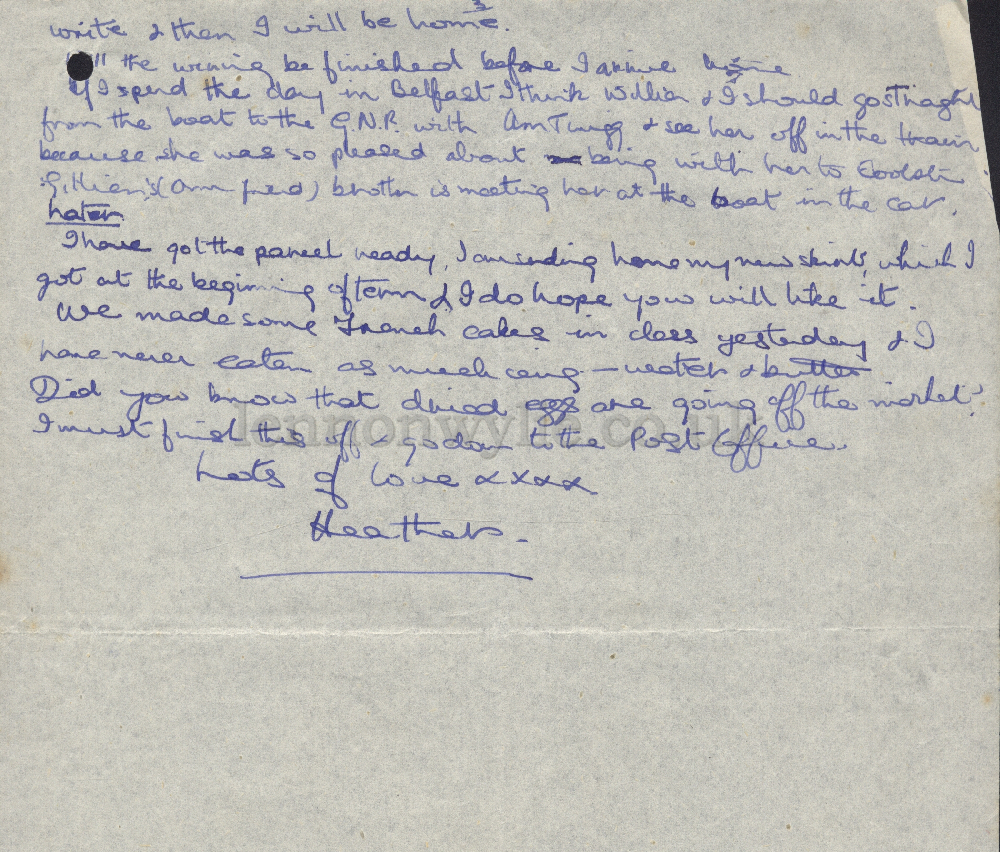 write & then I will be home.
"ll the wiring be finished before I arrive home
If I spend the day in Belfast I think Willian & I should go straight
from the boat to the G.N.R. with Ann Twigg & see her off in the train
because she was so pleased about being with her to
Gillian's (Ann friend) brother is meeting her at the boat in the car.
Later
I have got the parcel ready, I am sending home my new skirt, which I
got at the beginning of term & I do hope you will like it.
We made some French cakes in class yesterday & I
have never eaten as much icing – water & butter
Did you know that dried eggs are going off the market?
I must finish this off & go down to the Post Office.
Lots of love xxxx
Heather.
lennonwylie.co.uk